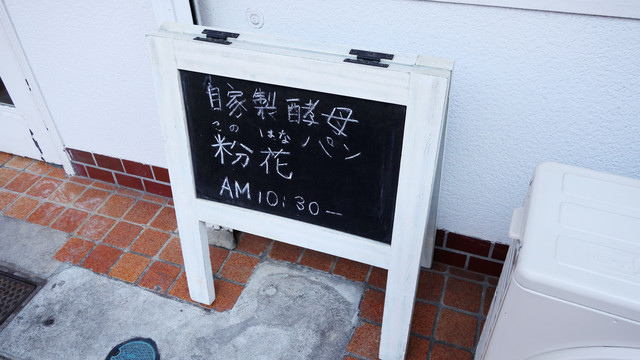 自家製酵母
パン
このはな
粉花
AM10:30ー